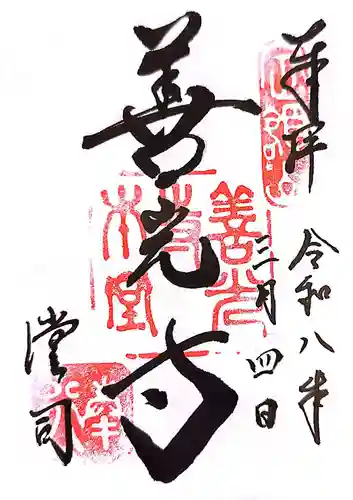 奉拝
令和八年
三月四日
善光寺
堂司
善光寺本堂